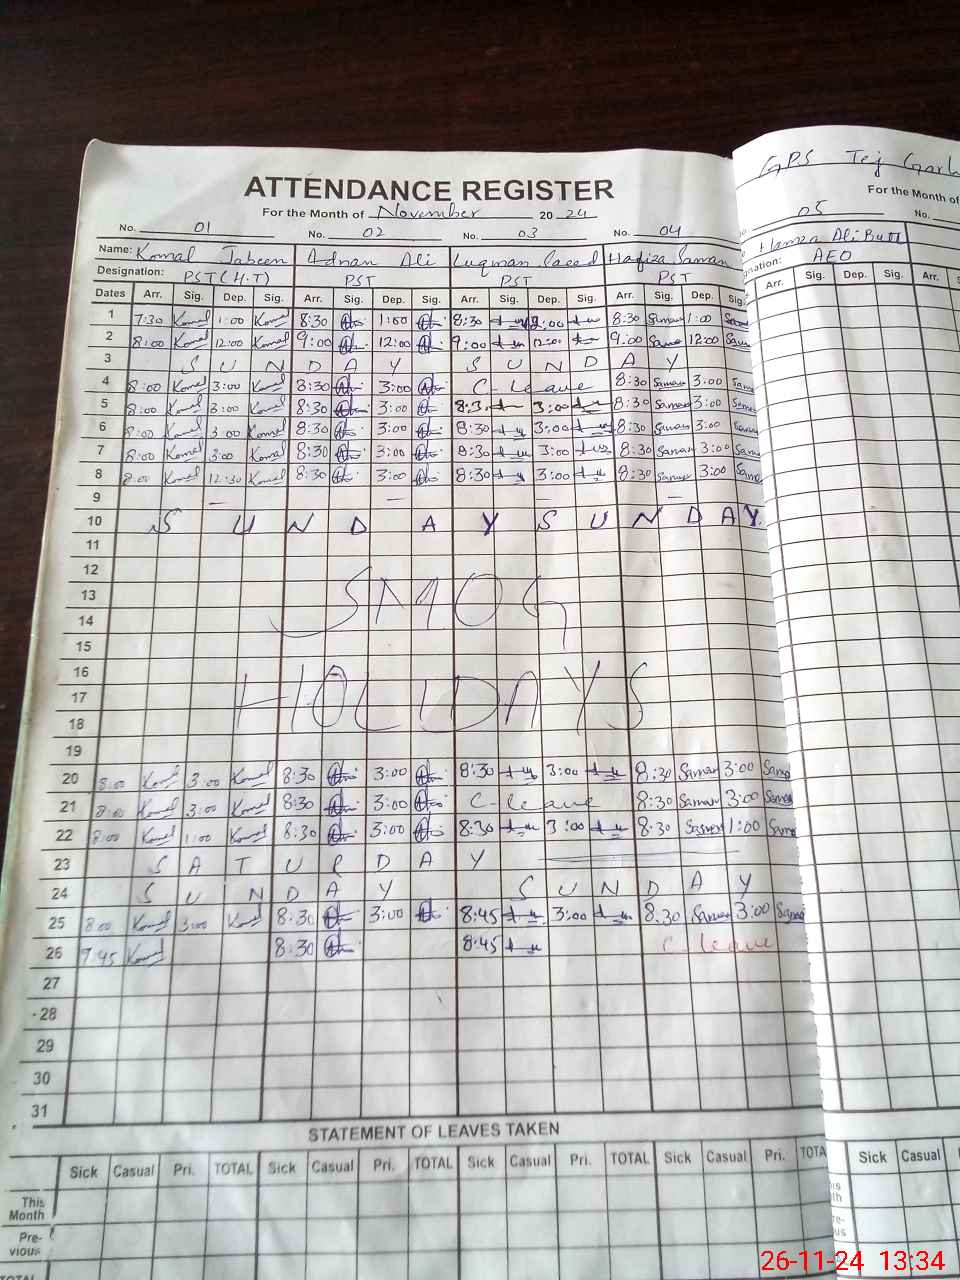 ATTENDANCE REGISTER
For the Month of November 20 24
No. 01 No. 02 No. 03 No. 04
Name: Komal Jabeen Adnan Ali Luqman Saeed Hafiza Saman
Designation: PST (H.T) PST PST PST
Dates Arr. Sig. Dep. Sig. Arr. Sig. Dep. Sig. Arr. Sig. Dep. Sig. Arr. Sig. Dep. Sig.
1 7:30 Komal 1:00 Komal 8:30 1:00 8:30 8:30 Saman 1:00 Saman
2 8:00 Komal 12:00 Komal 9:00 12:00 9:00 12:00 9:00 Sama 12:00 Sama
3 S U N D A Y S U N D A Y
4 8:00 Komal 3:00 Komal 8:30 3:00 C-leave 8:30 Saman 3:00 Sama
5 8:00 Komal 3:00 Komal 8:30 3:00 8:3 3:00 8:30 Saman 3:00 Sama
6 8:00 Komal 3:00 Komal 8:30 3:00 8:30 3:00 8:30 Saman 3:00 Saman
7 8:00 Komal 3:00 Komal 8:30 3:00 8:30 3:00 8:30 Saman 3:00 Sam
8 8:00 Komal 12:30 Komal 8:30 3:00 8:30 3:00 8:30 Saman 3:00 Sama
9 — — — —
10 S U N D A Y S U N D A Y.
11
12
13 SMOG
14
15
16
17 HOLIDAYS
18
19
20 8:00 Komal 3:00 Komal 8:30 3:00 8:30 3:00 8:30 Saman 3:00 Sama
21 8:00 Komal 3:00 Komal 8:30 3:00 C-leave 8:30 Saman 3:00 Sama
22 8:00 Komal 1:00 Komal 8:30 3:00 8:30 3:00 8:30 Saman 1:00 Sama
23 S A T U R D A Y
24 S U N D A Y S U N D A Y
25 8:00 Komal 3:00 Komal 8:30 3:00 8:45 3:00 8:30 Saman 3:00 Sama
26 7:45 Komal 8:30 8:45 C-leave
27
28
29
30
31
STATEMENT OF LEAVES TAKEN
Sick Casual Pri. TOTAL Sick Casual Pri. TOTAL Sick Casual Pri. TOTAL Sick Casual Pri. TOTA
This Month
Pre-vious
TOTAL
GPS Tej Garh
For the Month of
05 No.
Hamza Ali Butt
gnation: AEO
Arr. Sig. Dep. Sig. Arr. S
Sick Casual
is th
re- us
26-11-24 13:34